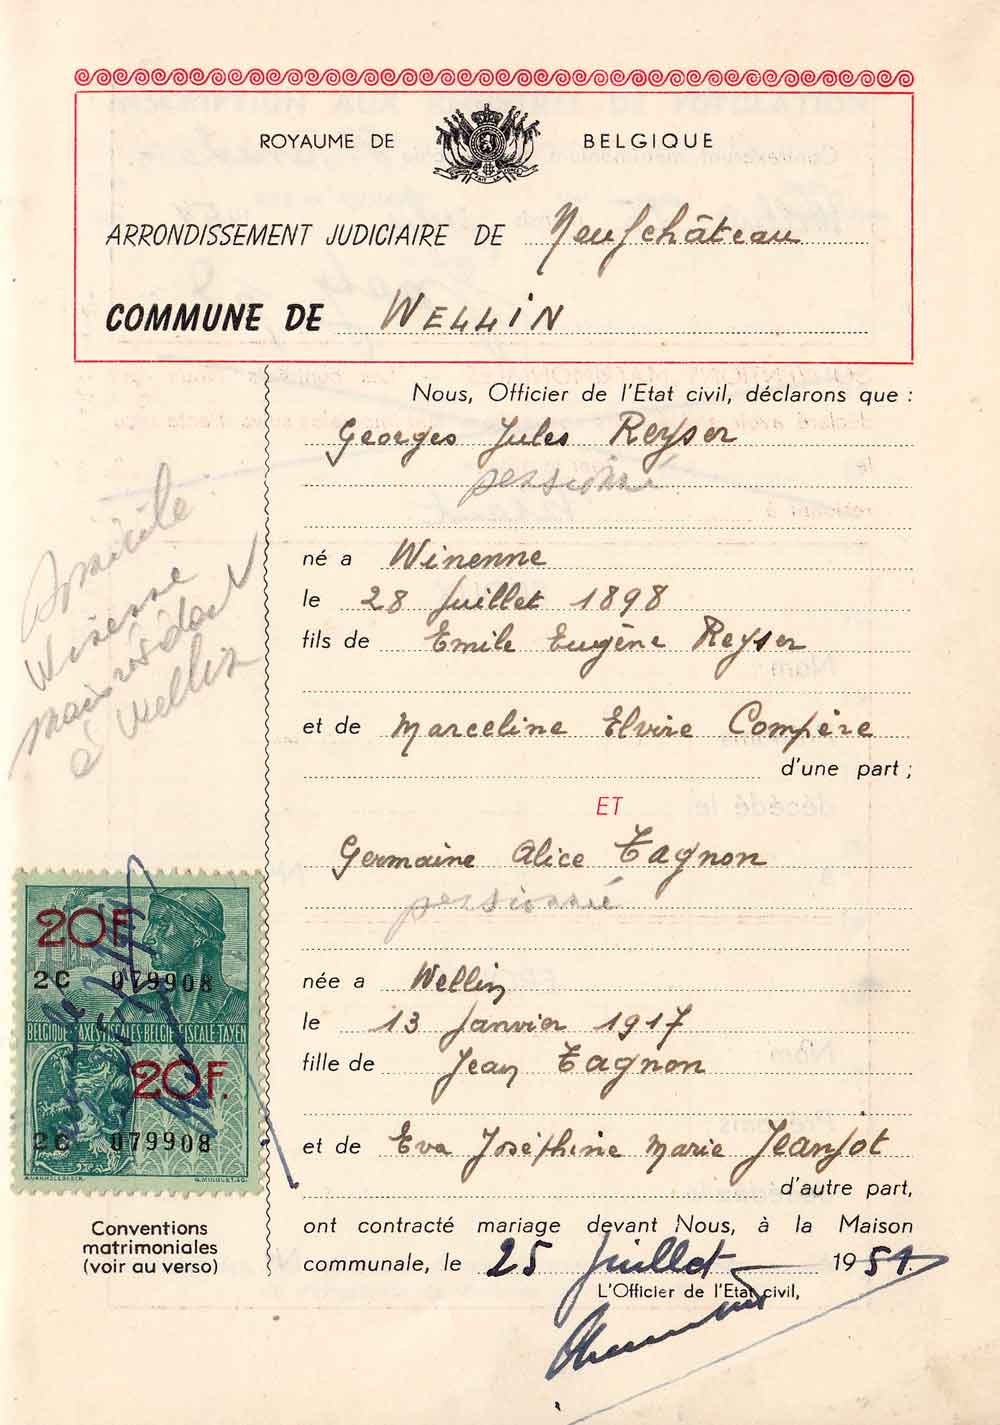 ROYAUME DE BELGIQUE
ARRONDISSEMENT JUDICIAIRE DE Neufchâteau
COMMUNE DE WELLIN
Nous, Officier de l'Etat civil, déclarons que :
Georges Jules Reyser
pensionné
né a Winenne
le 28 Juillet 1898
fils de Emile Eugène Reyser
et de Marceline Elvire Compère
d'une part ;
ET
Germaine Alice Tagnon
pensionné
née a Wellin
le 13 Janvier 1917
fille de Jean Tagnon
et de Eva Joséphine Marie Jeanjot
d'autre part,
ont contracté mariage devant Nous, à la Maison
communale, le 25 Juillet 1951.
L'Officier de l'Etat civil,
Domicile
Winenne
mais résidant
à Wellin
20F.
2C 079908
BELGIQUE-TAXES-FISCALES-BELGIE-FISCALE-TAXEN
20F.
2C 079908
Conventions
matrimoniales
(voir au verso)